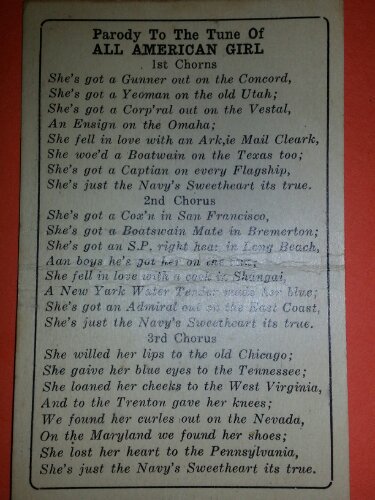 Parody To The Tune Of
ALL AMERICAN GIRL
1st Chorns
She's got a Gunner out on the Concord,
She's got a Yeoman on the old Utah;
She's got a Corp'ral out on the Vestal,
An Ensign on the Omaha;
She fell in love with an Ark,ie Mail Cleark,
She woe'd a Boatwain on the Texas too;
She's got a Captian on every Flagship,
She's just the Navy's Sweetheart its true.
2nd Chorus
She's got a Cox'n in San Francisco,
She's got a Boatswain Mate in Bremerton;
She's got an S.P. right hear in Long Beach,
Aan boys he's got her on the
She fell in love with a cook in Shangai,
A New Yark Water Tender made her blue;
She's got an Admiral out on the East Coast,
She's just the Navy's Sweetheart its true.
3rd Chorus
She willed her lips to the old Chicago;
She gaive her blue eyes to the Tennessee;
She loaned her cheeks to the West Virginia,
And to the Trenton gave her knees;
We found her curles out on the Nevada,
On the Maryland we found her shoes;
She lost her heart to the Pennsylvania,
She's just the Navy's Sweetheart its true.